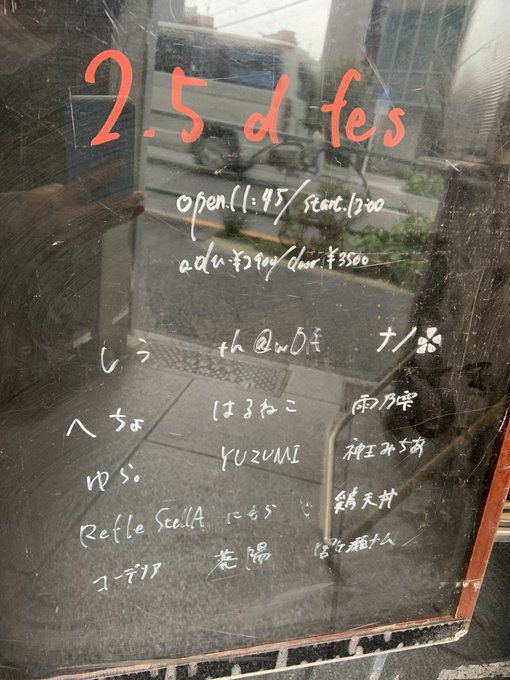 2.5d fes
open.11:45/start.12:00
adv.¥2900/door.¥3500
しう th@w0A ナノ✽
へちょ はるねこ 雨乃雫
ゆら。 YUZUMI 神王みちあ
Refle StellA にもら 鶏天丼
コーデリア 陽 瀬ナム